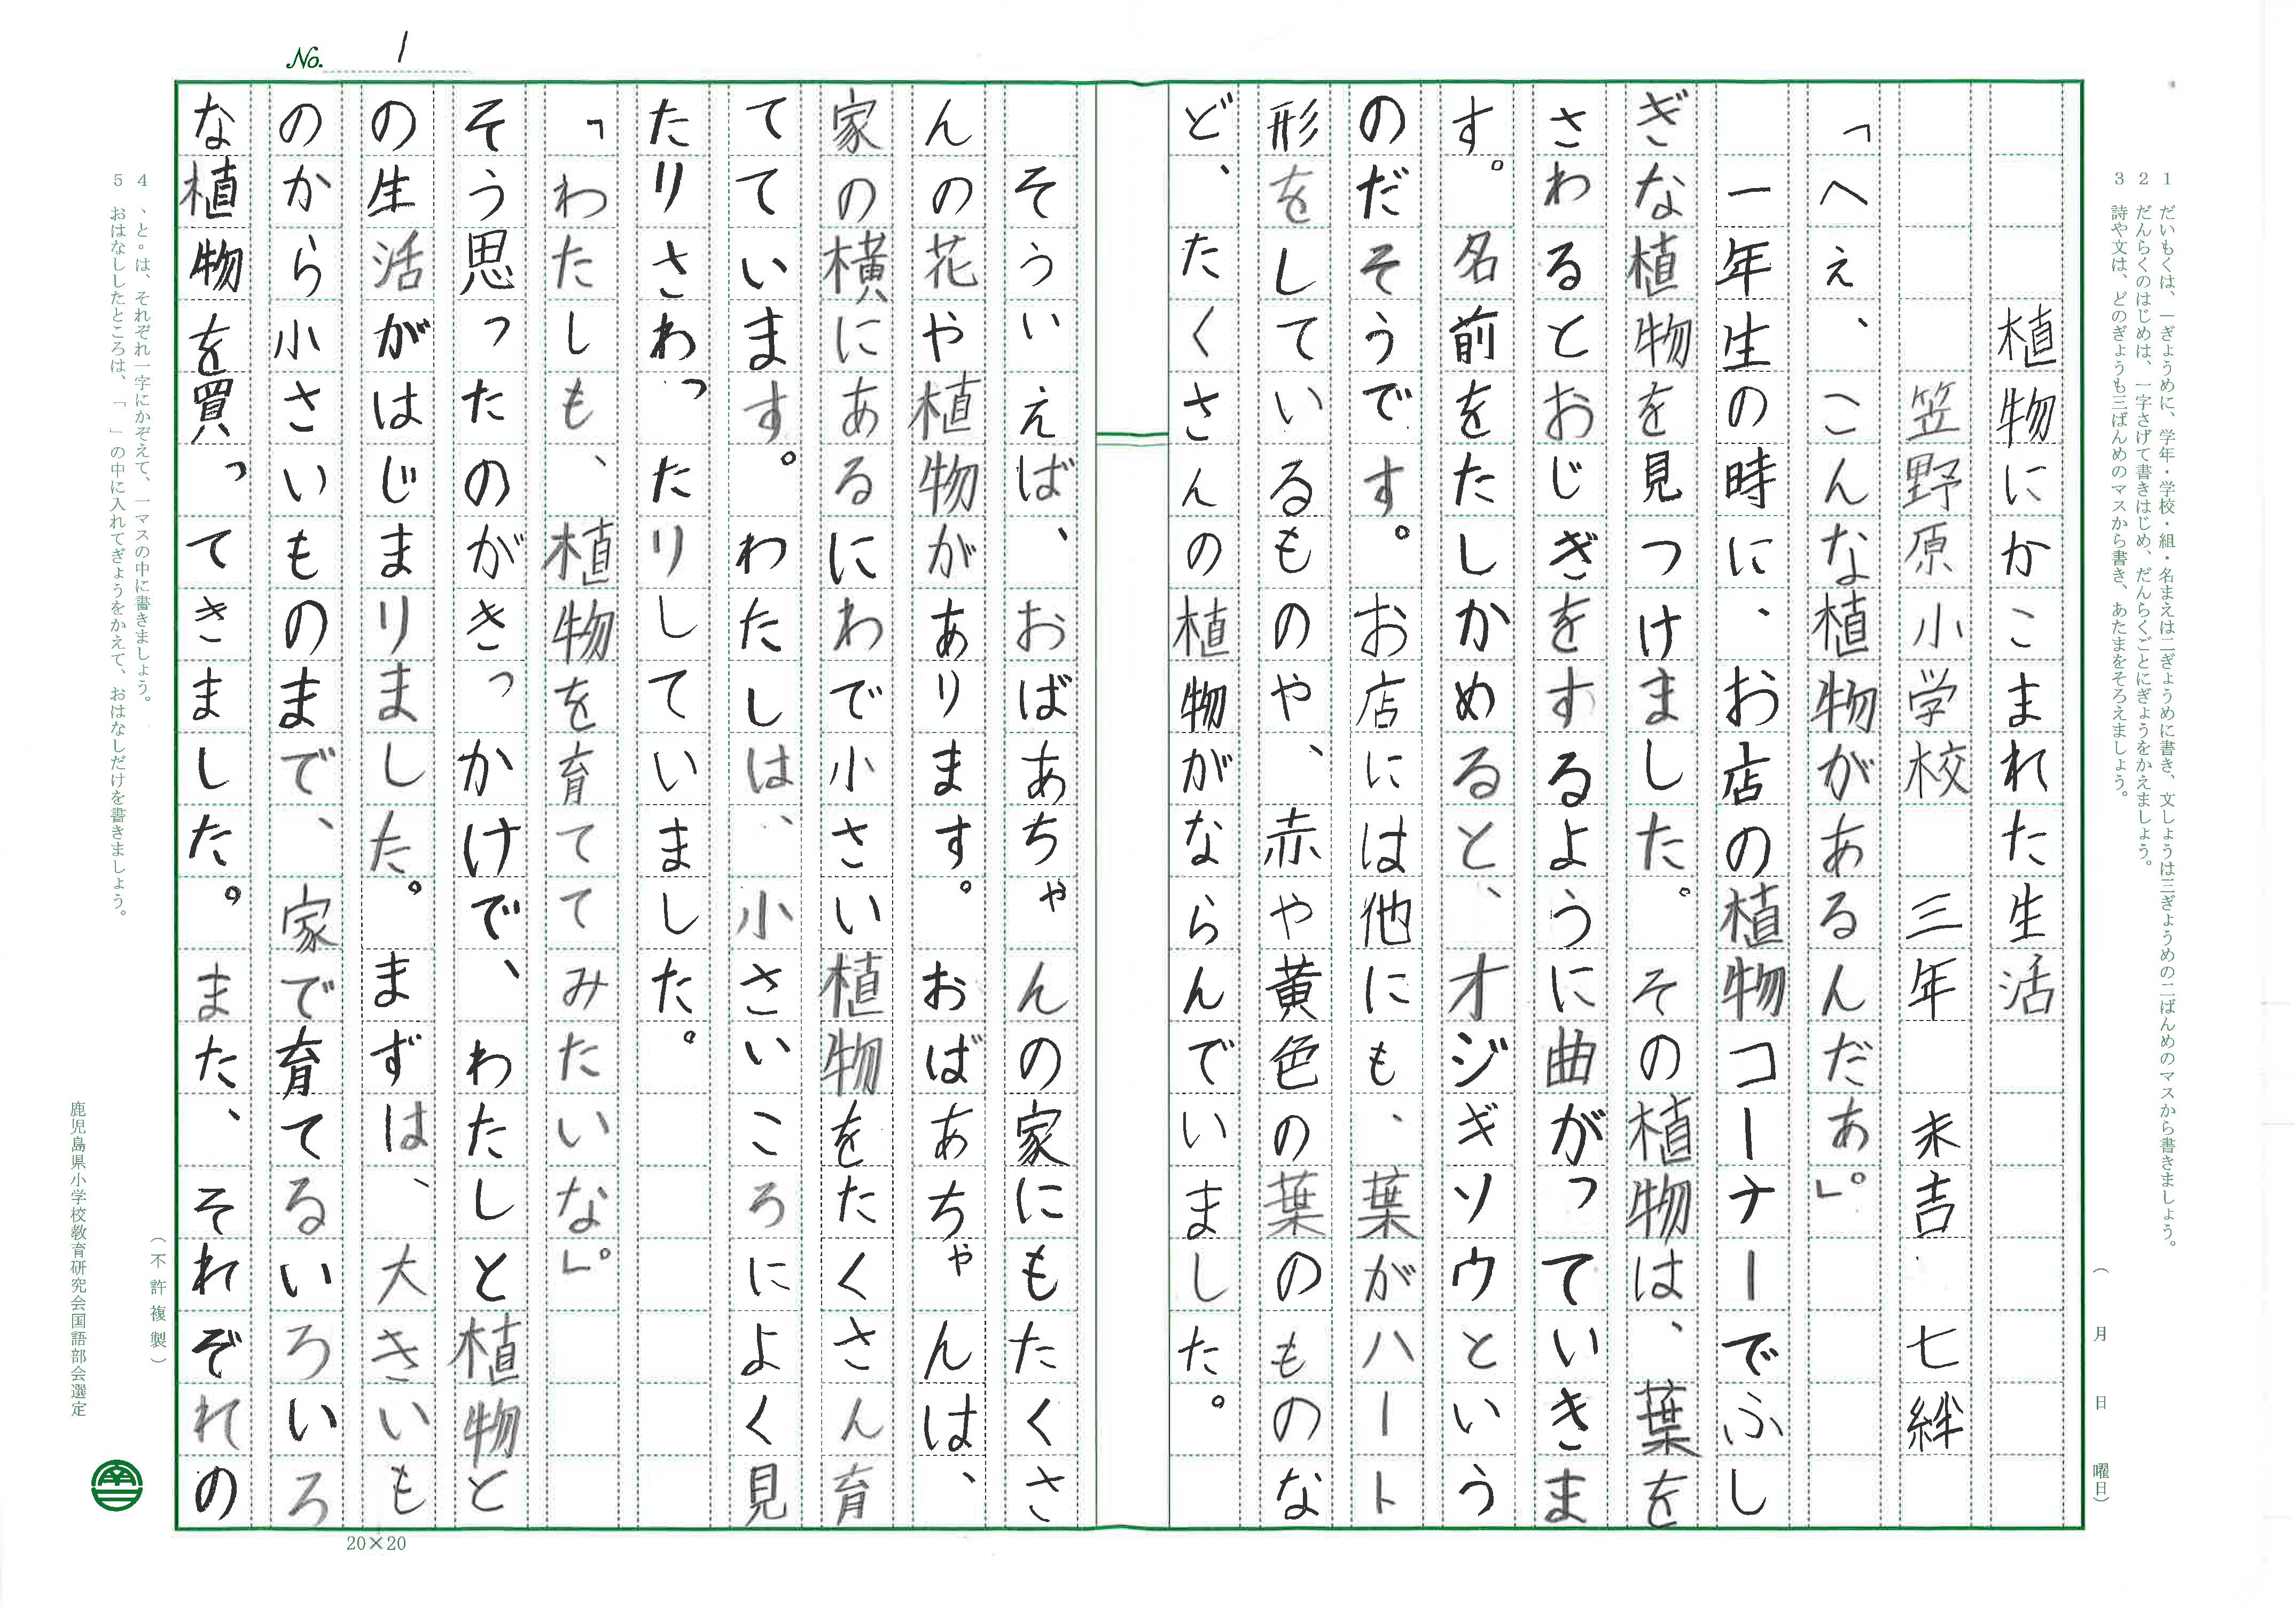 No. 1
1 だいもくは、一ぎょうめに、学年・学校・組・名まえは二ぎょうめに書き、文しょうは三ぎょうめの二ばんめのマスから書きましょう。
2 だんらくのはじめは、一字さげて書きはじめ、だんらくごとにぎょうをかえましょう。
3 詩や文は、どのぎょうも三ばんめのマスから書き、あたまをそろえましょう。
( 月 日 曜日)
植物にかこまれた生活
笠野原小学校 三年 末吉 七絆
「へえ、こんな植物があるんだあ。」
一年生の時に、お店の植物コーナーでふし
ぎな植物を見つけました。その植物は、葉を
さわるとおじぎをするように曲がっていきま
す。名前をたしかめると、オジギソウという
のだそうです。お店には他にも、葉がハート
形をしているものや、赤や黄色の葉のものな
ど、たくさんの植物がならんでいました。
そういえば、おばあちゃんの家にもたくさ
んの花や植物があります。おばあちゃんは、
家の横にあるにわで小さい植物をたくさん育
てています。わたしは、小さいころによく見
たりさわったりしていました。
「わたしも、植物を育ててみたいな。」
そう思ったのがきっかけで、わたしと植物と
の生活がはじまりました。まずは、大きいも
のから小さいものまで、家で育てるいろいろ
な植物を買ってきました。また、それぞれの
4 、と。は、それぞれ一字にかぞえて、一マスの中に書きましょう。
5 おはなししたところは、「 」の中に入れてぎょうをかえて、おはなしだけを書きましょう。
(不許複製)
鹿児島県小学校教育研究会国語部会選定
20×20